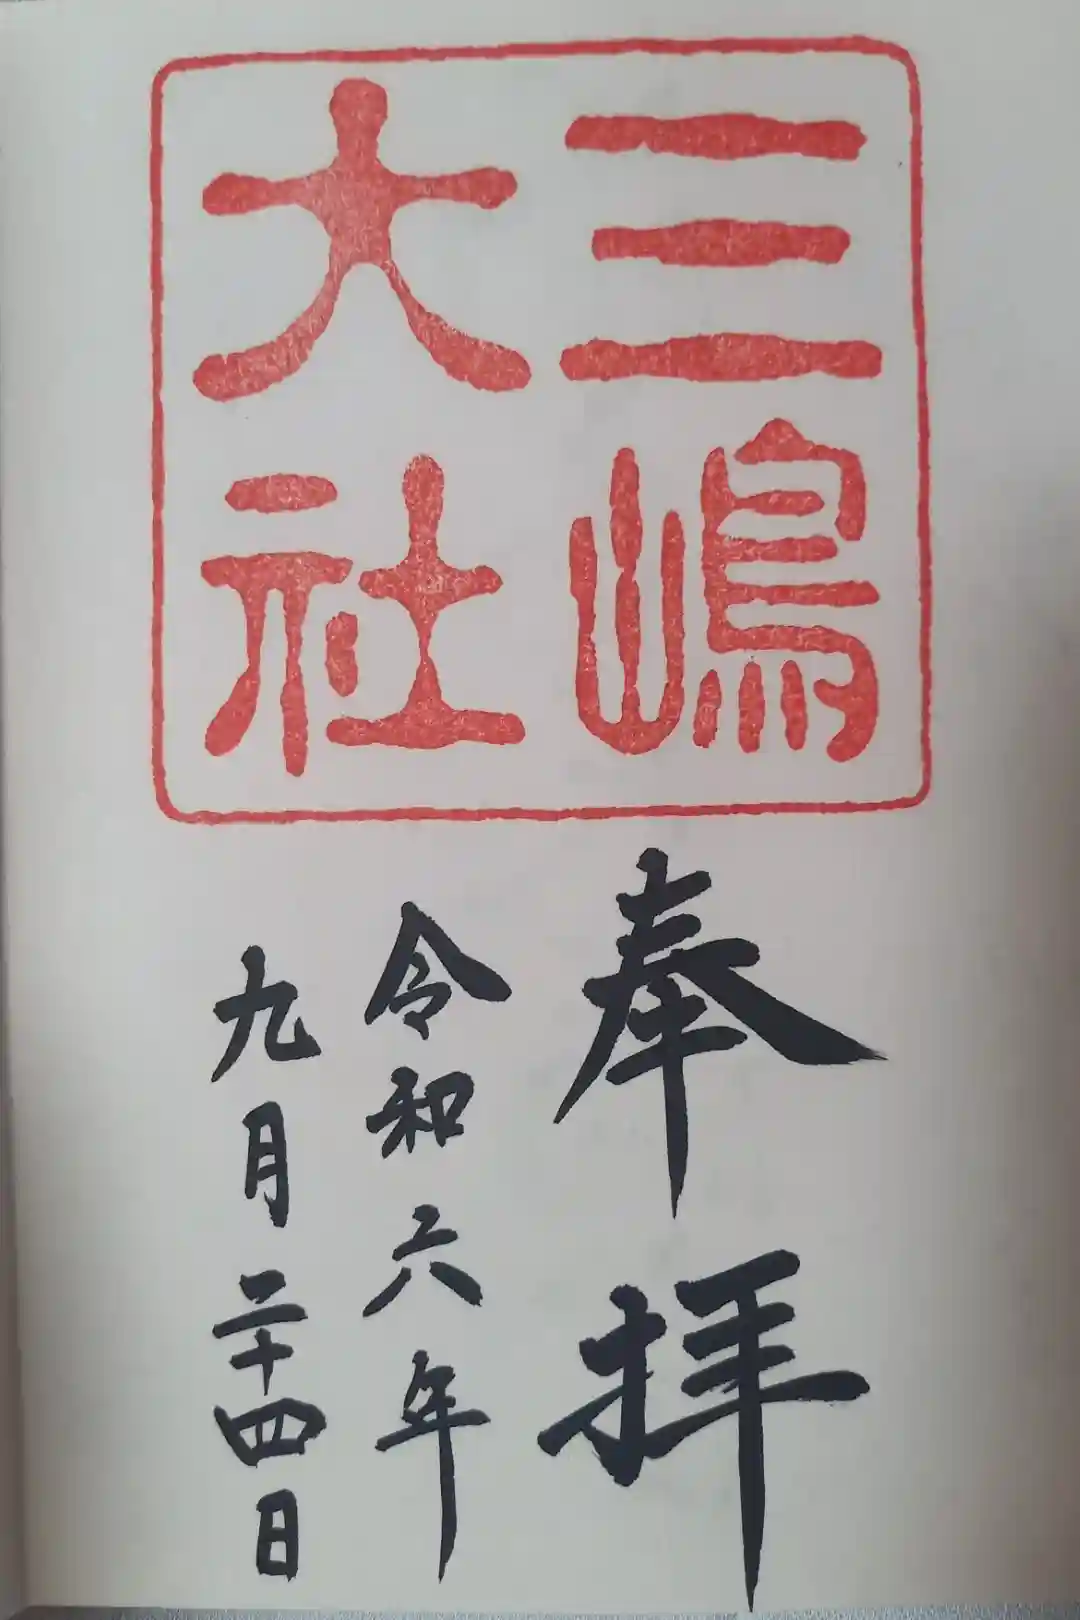 三嶋
大社
奉拝
令和六年
九月二十四日